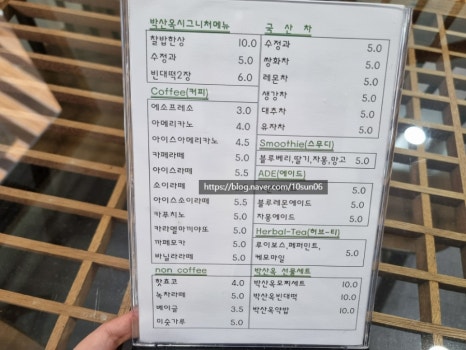 박산옥시그니처메뉴
찰밥한상 10.0
수정과 5.0
빈대떡2장 6.0
Coffee(커피)
에소프레소 3.0
아메리카노 4.0
아이스아메리카노 4.5
카페라떼 5.0
아이스라떼 5.5
소이라떼
아이스소이라떼 5.5
카푸치노 5.0
카라멜마끼아또 5.0
까페모카 5.0
바닐라라떼 5.0
non coffee
핫쵸코 4.0
녹차라떼 5.0
베이글 3.5
미숫가루 5.0
국산차
수정과 5.0
쌍화차 5.0
레몬차 5.0
생강차 5.0
대추차 5.0
유자차 5.0
Smoothie(스무디)
블루베리,딸기,자몽,망고 5.0
ADE(에이드)
블루레몬에이드 5.0
자몽에이드 5.0
Herbal-Tea(허브-티)
루이보스,페퍼민트, 5.0
케모마일
박산옥 선물세트
박산옥모찌세트 10.0
박산옥빈대떡 10.0
박산옥약밥 10.0
https://blog.naver.com/10sun06